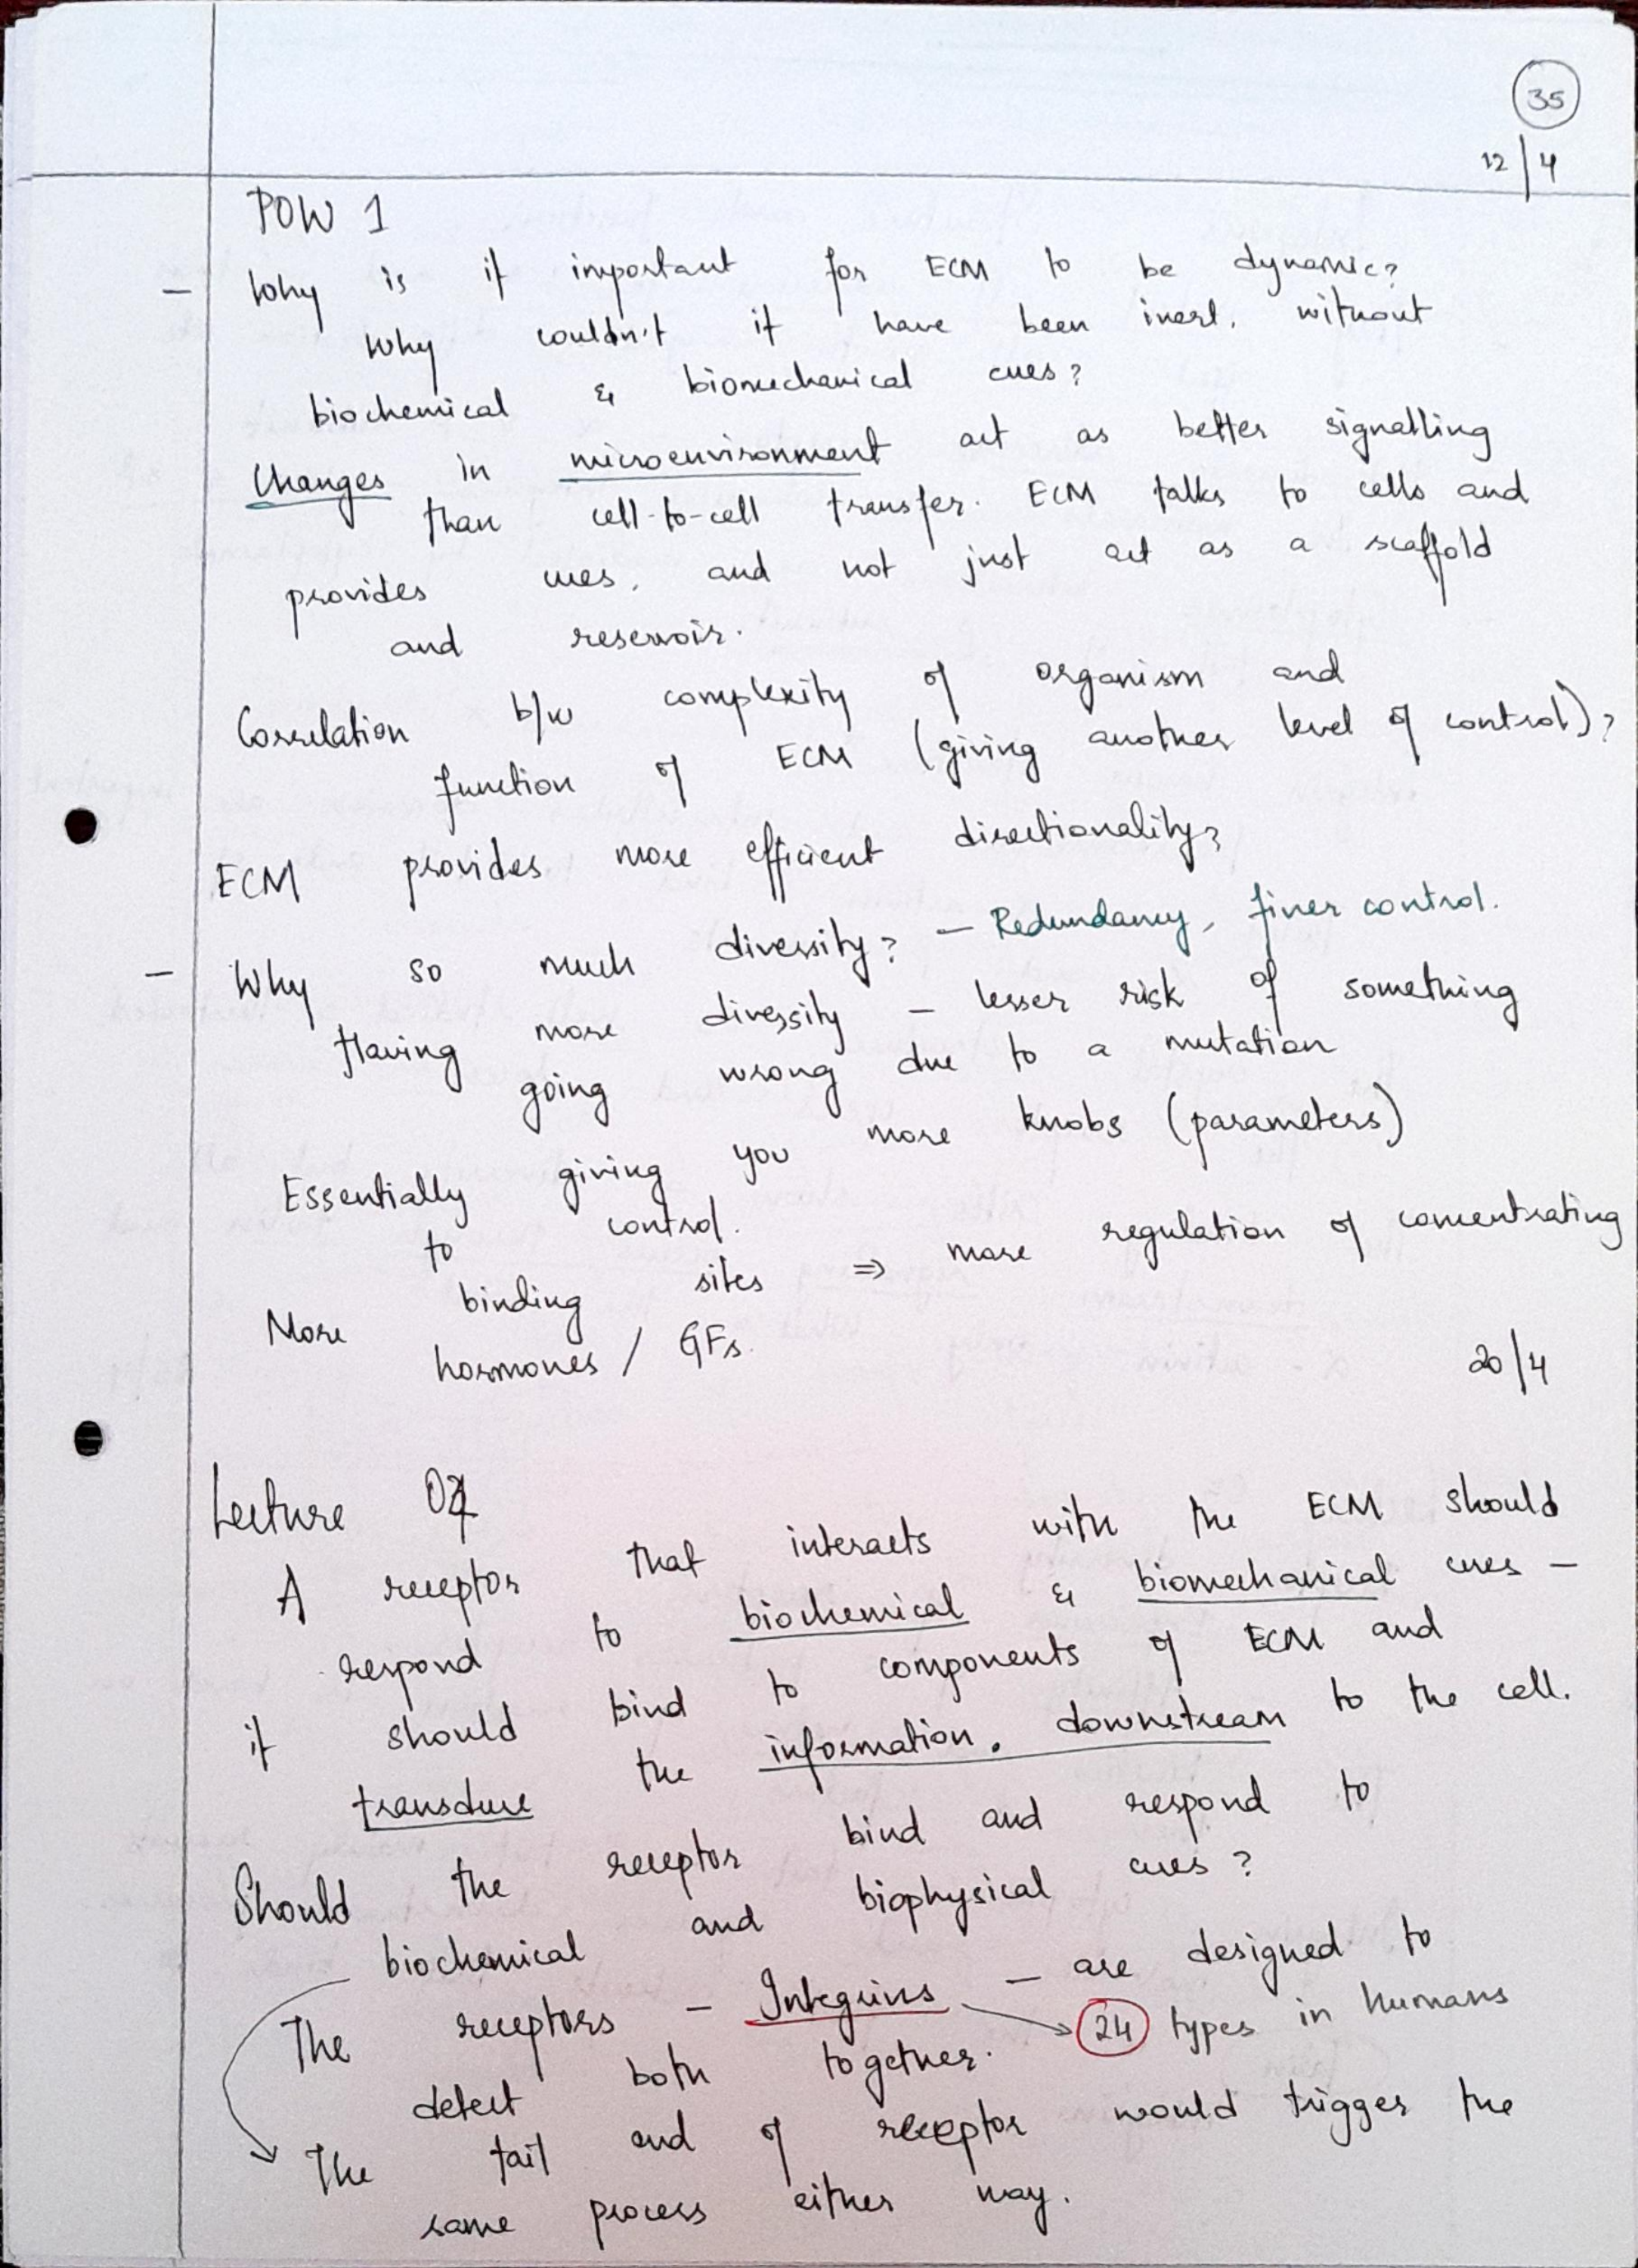 35
12/4
POW 1
- Why is it important for ECM to be dynamic?
Why couldn't it have been inert, without
biochemical & biomechanical cues?
Changes in microenvironment act as better signalling
than cell-to-cell transfer. ECM talks to cells and
provides cues, and not just act as a scaffold
and reservoir.
Correlation b/w complexity of organism and
function of ECM (giving another level of control)?
ECM provides more efficient directionality?
- Why so much diversity? - Redundancy, finer control.
Having more diversity - lesser risk of something
going wrong due to a mutation
Essentially giving you more knobs (parameters)
to control.
More binding sites ⇒ more regulation of concentrating
hormones / GFs.
20/4
Lecture
A receptor that interacts with the ECM should
respond to biochemical & biomechanical cues -
it should bind to components of ECM and
transduce the information. downstream to the cell.
Should the receptor bind and respond to
biochemical and biophysical cues?
The receptors - Integrins - are designed to
→ 24 types in humans
detect both together.
The tail end of receptor would trigger the
same process either way.